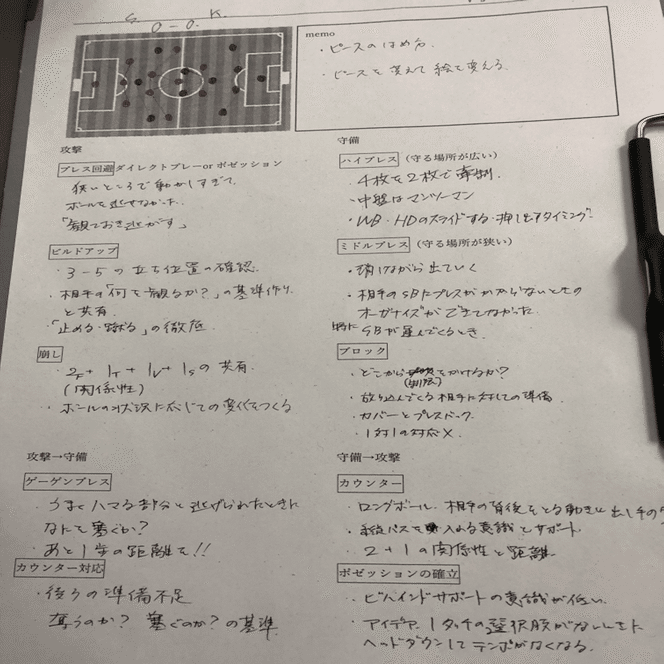 S. 0-0. K.
memo
・ピースのはめ方.
・ピースを変えて絵を変える.
攻撃
プレス回避 ダイレクトプレーor ポゼッション
狭いところで動かしすぎて、
ボールを逃せなかった.
「観ておき逃がす」
ビルドアップ
・3-5の立ち位置の確認.
・相手の「何を観るか?」の基準作り
と共有.
・「止める・蹴る」の徹底.
崩し
の共有.
(関係性)
・ボールの状況に応じての変化をつくる
守備
ハイプレス(守る場所が広い)
・4枚を2枚で牽制.
・中盤はマンツーマン
・WB・HDのスライドする・押し出すタイミング
ミドルプレス(守る場所が狭い)
・消けながら出ていく
・相手のSBにプレスがかからないときの
オーガナイズができてなかった.
SBが運んでくるとき.
ブロック
・どこから をかけるか?
・放り込んでくる相手に対しての準備.
・カバーとプレスバック.
・1対1の対応 X.
攻撃→守備
ゲーゲンプレス
・うまくハマる部分と逃げられたときに
なにで塞ぐか?
・あと1歩の距離を!!
カウンター対応
・後ろの準備不足
奪うのか? 塞ぐのか?の基準.
守備→攻撃
カウンター
・ロングボール. 相手の背後をとる動きに出し手の
・縦パスを 入れる意識とサポート.
・2+1の関係性と距離.
ポゼッションの確立
・ビハインドサポートの意識が低い.
・アイデア. 1タッチの選択肢がないときに
ヘッドダウンしてテンポがなくなる.